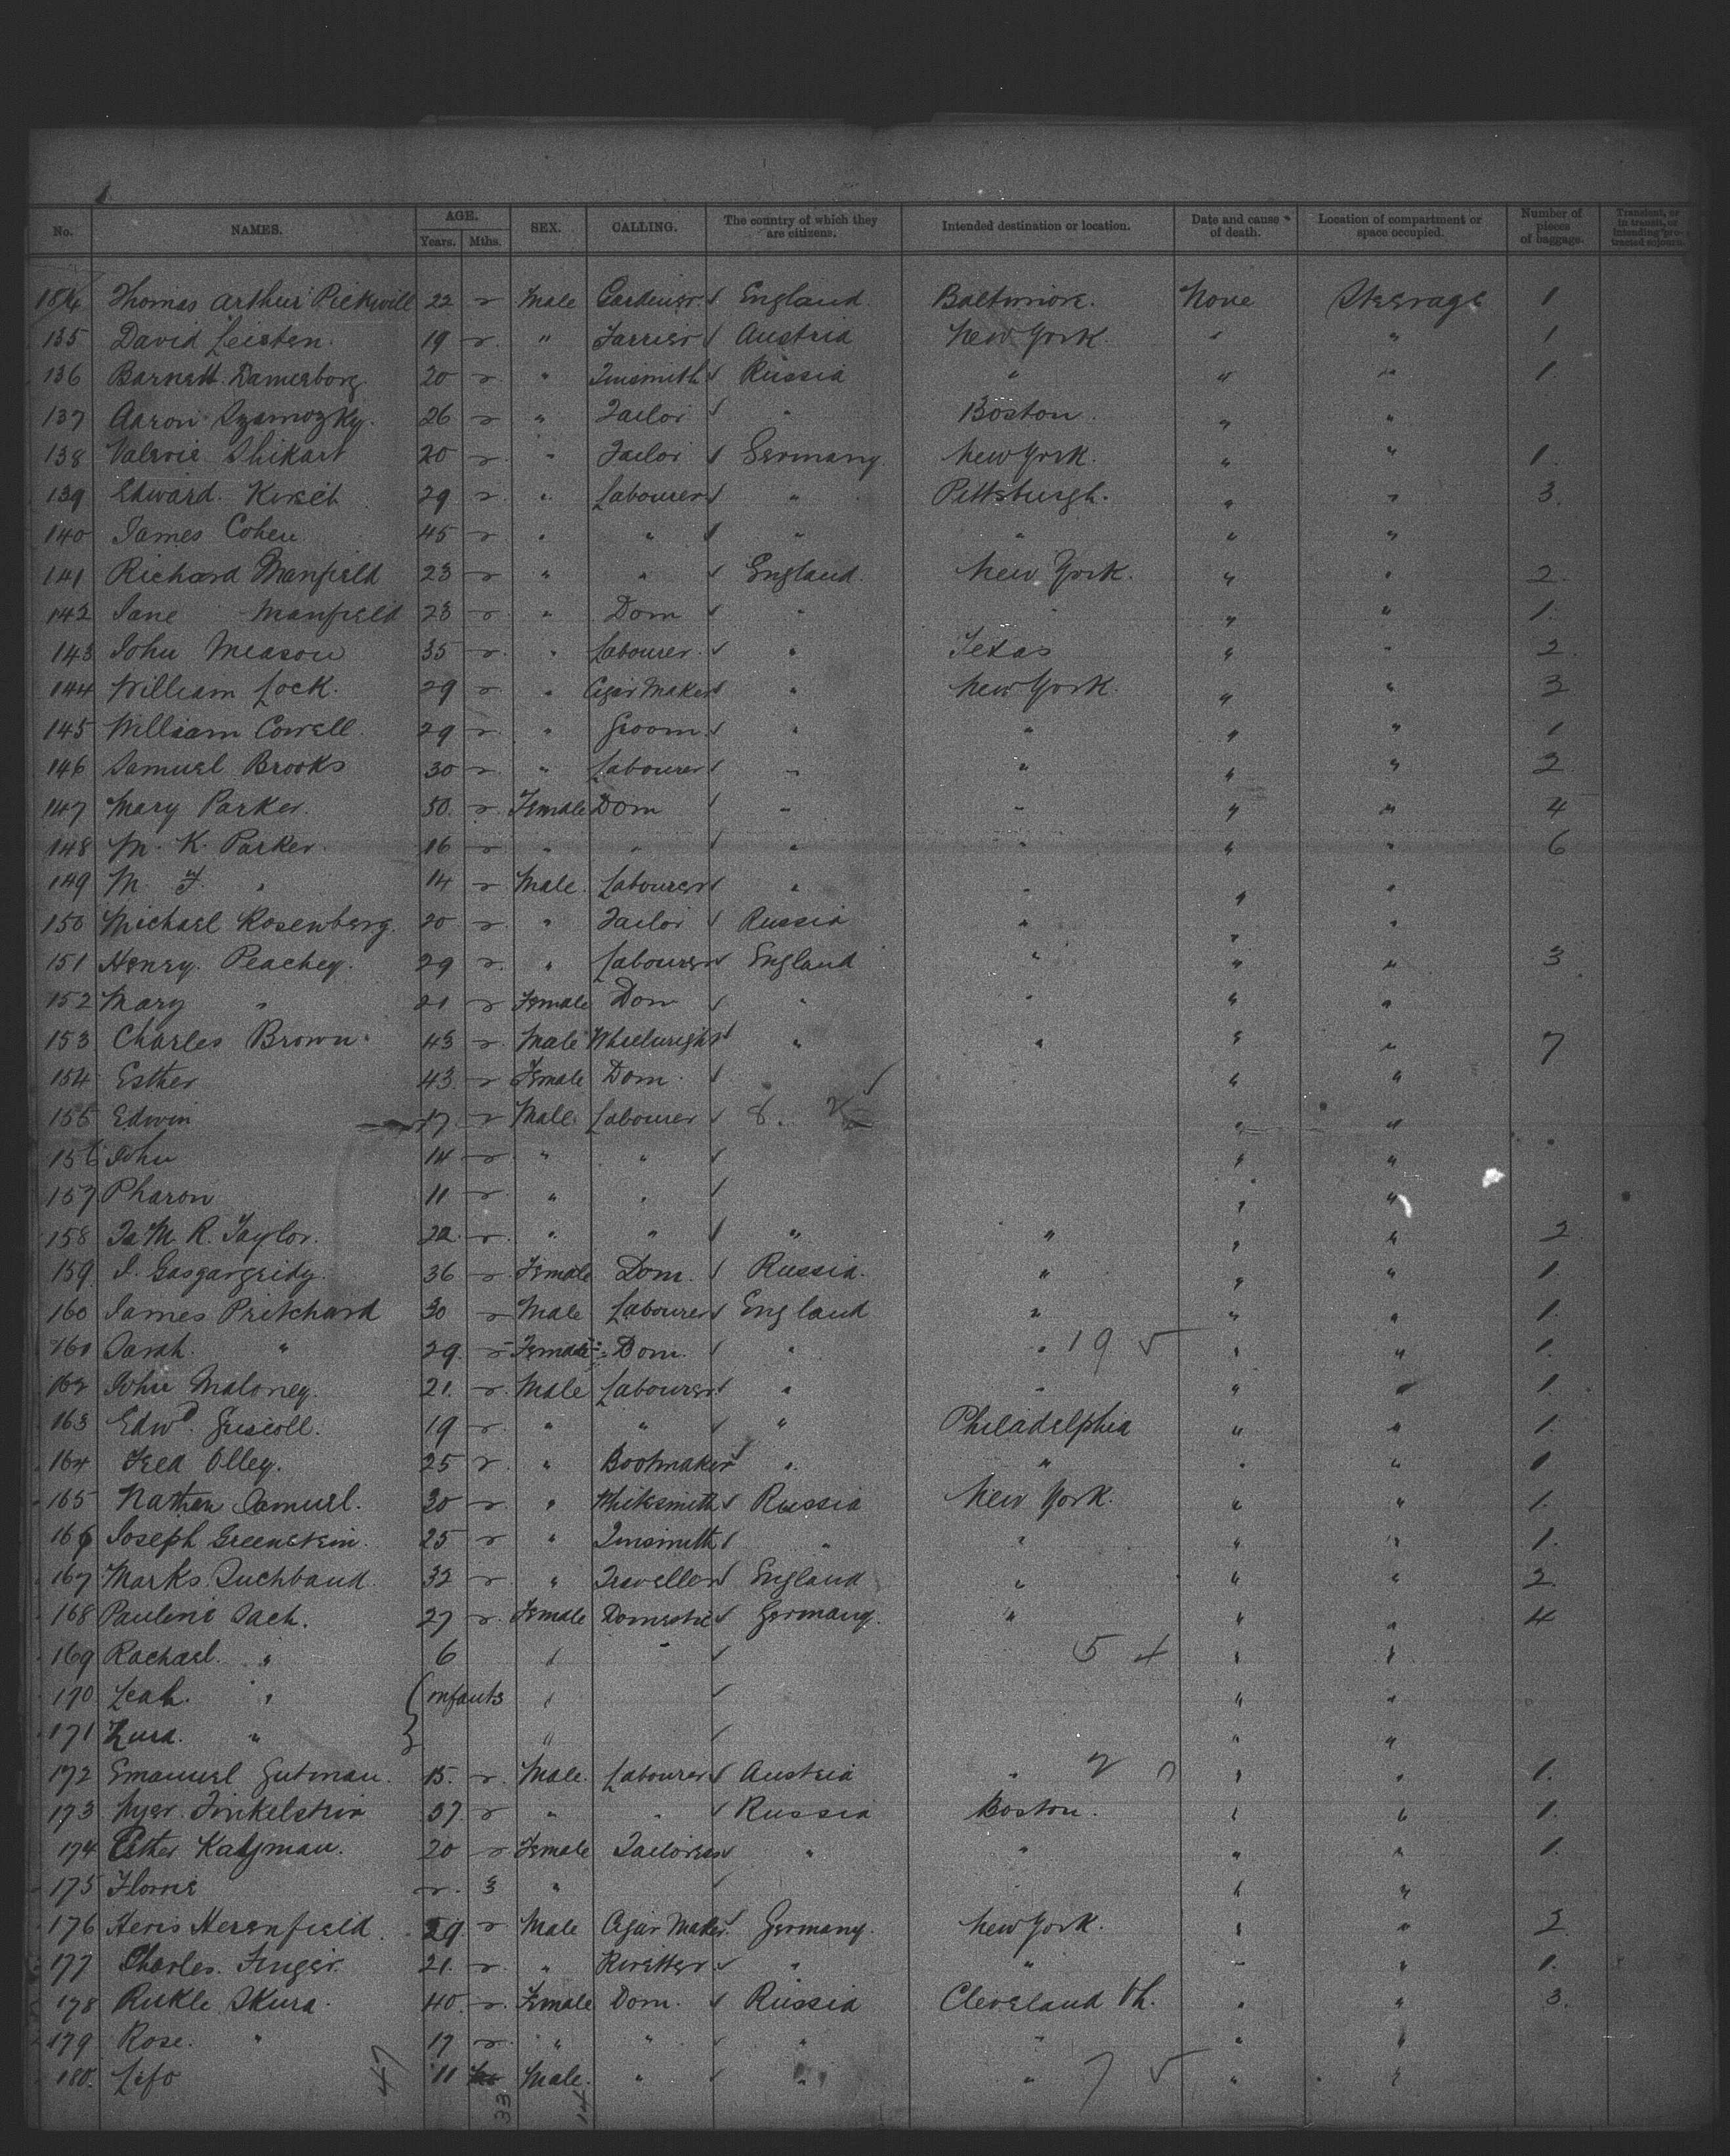 No. NAMES. AGE. Years. Mths. SEX. CALLING. The country of which they are citizens. Intended destination or location. Date and cause of death. Location of compartment or space occupied. Number of pieces of baggage. Transient, or in transit, or intending protracted sojourn.
134 Thomas Arthur Pickwill 22 Male Gardener England Baltimore. None Steerage 1
135 David Leisten. 19 " Farrier Austria New York. " " 1
136 Barnett 20 " Tinsmith Russia " " " 1
137 Aaron 26 " Tailor " Boston. " "
138 Valerie Shikart 20 " Tailor Germany New York. " " 1.
139 Edward. 29 " Labourer " Pittsburgh. " " 3.
140 James Cohen 45 " " " " " "
141 Richard Manfield 23 " " England. New York. " " 2.
142 Jane Manfield 23 " Dom " " " " 1.
143 John Meason 35 " Labourer " Texas " " 2.
144 William Lock. 29 " Cigar Maker " New York. " " 3
145 William Cowell. 29 " Groom " " " " 1
146 Samuel Brooks 30 " Labourer " " " " 2.
147 Mary Parker. 50. Female Dom " " " " 4
148 M. K. Parker. 16 " " " " " " 6
149 M. F. " 14 Male. Labourer " " " "
150 Michael Rosenberg. 20 " Tailor Russia " " "
151 Henry. Peachey. 29 " Labourer England " " " 3
152 Mary " 21 Female Dom " " " "
153 Charles Brown. 43 Male Wheelwright " " " " 7
154 Esther 43. Female Dom. " "
155 Edwin 17 Male Labourer 8. " "
156 John 14 " " " "
157 Pharon 11 " " " "
158 M. R. Taylor. 22. " " " " " " 2.
159 36 Female Dom. Russia. " " " 1.
160 James Pritchard 30 Male Labourer England " " " 1.
161 Sarah. " 29. Female Dom. " " 19 5 " " 1.
162 John Maloney. 21. Male Labourer " " " " 1.
163 Edwd. 19 " " " Philadelphia " " 1.
164 Fred Olley. 25 " Bootmaker " " " " 1
165 Nathan Samuel. 30 " Whitesmith Russia New York. " " 1.
166 Joseph Greenstein. 25 " Tinsmith " " " " 1.
167 Marks 32 " Traveller England " " " 2.
168 Pauline Sach. 27 Female Domestic Germany. " " " 4
169 Rachael. " 6 " " 5 4 " "
170 Leah. " infants " " "
171 " " " "
172 Emanuel Gutman. 15. Male. Labourer Austria " " " 1.
173 Finkelstein 37. " " Russia Boston. " " 1.
174 Esther 20 Female Tailoress " " " " 1.
175 3 " " "
176 29. Male Cigar Maker. Germany. New York. " " 2.
177 Charles. Finger. 21. " Rivetter " " " " 1.
178 Rukle Skura. 40. Female Dom. Russia Cleveland Oh. " " 3.
179 Rose. " 17 " " " " " "
180. 11 Male. " " " 7 5 " "
47 33 14